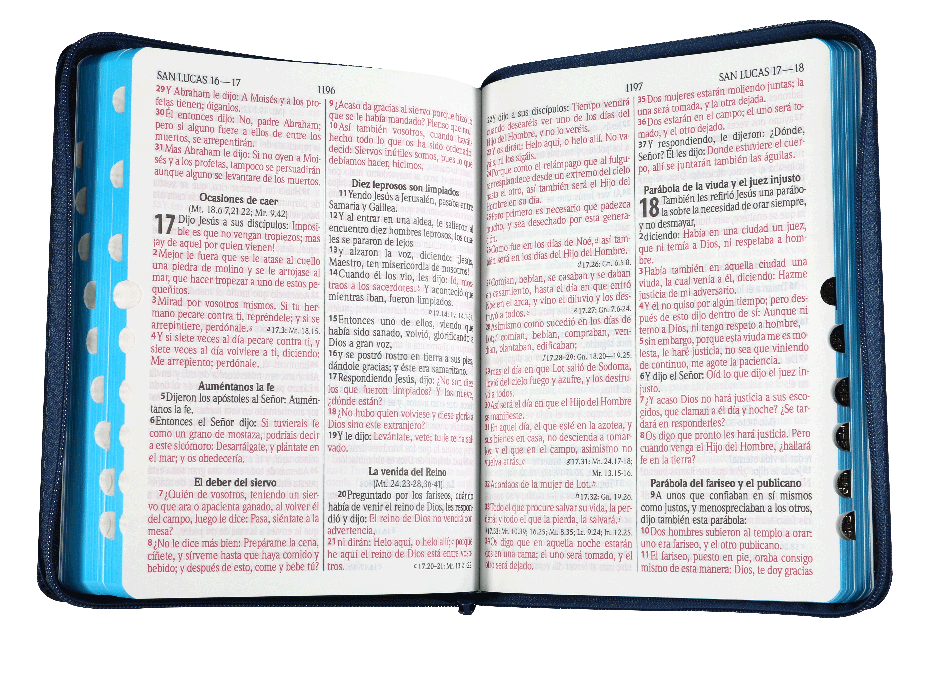 SAN LUCAS 16—17
1196
29Y Abraham le dijo: A Moisés y a los pro-
fetas tienen; óiganlos.
30Él entonces dijo: No, padre Abraham;
pero si alguno fuere a ellos de entre los
muertos, se arrepentirán.
31Mas Abraham le dijo: Si no oyen a Moi-
sés y a los profetas, tampoco se persuadirán
aunque alguno se levantare de los muertos.
Ocasiones de caer
(Mt. 18.6-7,21-22; Mr. 9.42)
17 Dijo Jesús a sus discípulos: Imposi-
ble es que no vengan tropiezos; mas
¡ay de aquel por quien vienen!
2Mejor le fuera que se le atase al cuello
una piedra de molino y se le arrojase al
mar, que hacer tropezar a uno de estos pe-
queñitos.
3Mirad por vosotros mismos. Si tu her-
mano pecare contra ti, repréndele; y si se
arrepintiere, perdónale. a 17.3: Mt. 18.15.
4Y si siete veces al día pecare contra ti, y
siete veces al día volviere a ti, diciendo:
Me arrepiento; perdónale.
Auméntanos la fe
5Dijeron los apóstoles al Señor: Aumén-
tanos la fe.
6Entonces el Señor dijo: Si tuvierais fe
como un grano de mostaza, podríais decir
a este sicómoro: Desarráigate, y plántate en
el mar; y os obedecería.
El deber del siervo
7¿Quién de vosotros, teniendo un sier-
vo que ara o apacienta ganado, al volver él
del campo, luego le dice: Pasa, siéntate a la
mesa?
8¿No le dice más bien: Prepárame la cena,
cíñete, y sírveme hasta que haya comido y
bebido; y después de esto, come y bebe tú?
9¿Acaso da gracias al siervo porque hizo lo
que se le había mandado? Pienso que no.
10Así también vosotros, cuando hayáis
hecho todo lo que os ha sido ordenado,
decid: Siervos inútiles somos, pues lo que
debíamos hacer, hicimos.
Diez leprosos son limpiados
11Yendo Jesús a Jerusalén, pasaba entre
Samaria y Galilea.
12Y al entrar en una aldea, le salieron al
encuentro diez hombres leprosos, los cua-
les se pararon de lejos
13y alzaron la voz, diciendo: ¡Jesús,
Maestro, ten misericordia de nosotros!
14Cuando él los vio, les dijo: Id, mos-
traos a los sacerdotes. Y aconteció que
mientras iban, fueron limpiados.
15Entonces uno de ellos, viendo que
había sido sanado, volvió, glorificando a
Dios a gran voz,
16y se postró rostro en tierra a sus pies,
dándole gracias; y éste era samaritano.
17Respondiendo Jesús, dijo: ¿No son diez
los que fueron limpiados? Y los nueve,
¿dónde están?
18¿No hubo quien volviese y diese gloria a
Dios sino este extranjero?
19Y le dijo: Levántate, vete; tu fe te ha sal-
vado.
La venida del Reino
(Mt. 24.23-28,36-41)
20Preguntado por los fariseos, cuándo
había de venir el reino de Dios, les respon-
dió y dijo: El reino de Dios no vendrá con
advertencia,
21ni dirán: Helo aquí, o helo allí; porque
he aquí el reino de Dios está entre voso-
tros.
1197
SAN LUCAS 17—18
22Y dijo a sus discípulos: Tiempo vendrá
cuando desearéis ver uno de los días del
Hijo del Hombre, y no lo veréis.
23Y os dirán: Helo aquí, o helo allí. No va-
yáis, ni los sigáis.
24Porque como el relámpago que al fulgu-
rar resplandece desde un extremo del cielo
hasta el otro, así también será el Hijo del
Hombre en su día.
25Pero primero es necesario que padezca
mucho, y sea desechado por esta genera-
ción.
26Como fue en los días de Noé, así tam-
bién será en los días del Hijo del Hombre.
17.26: Gn. 6.5-8.
27Comían, bebían, se casaban y se daban
en casamiento, hasta el día en que entró
Noé en el arca, y vino el diluvio y los des-
truyó a todos. 17.27: Gn. 7.6-24.
28Asimismo como sucedió en los días de
Lot; comían, bebían, compraban, ven-
dían, plantaban, edificaban;
17.28-29: Gn. 18.20—19.25.
29mas el día en que Lot salió de Sodoma,
llovió del cielo fuego y azufre, y los destru-
yó a todos.
30Así será el día en que el Hijo del Hombre
se manifieste.
31En aquel día, el que esté en la azotea, y
sus bienes en casa, no descienda a tomar-
los; y el que en el campo, asimismo no
vuelva atrás. 17.31: Mt. 24.17-18;
Mr. 13.15-16.
32Acordaos de la mujer de Lot.
17.32: Gn. 19.26.
33Todo el que procure salvar su vida, la per-
derá; y todo el que la pierda, la salvará.
34Os digo que en aquella noche estarán
dos en una cama; el uno será tomado, y el
otro será dejado.
35Dos mujeres estarán moliendo juntas; la
una será tomada, y la otra dejada.
36Dos estarán en el campo; el uno será to-
mado, y el otro dejado.
37Y respondiendo, le dijeron: ¿Dónde,
Señor? Él les dijo: Donde estuviere el cuer-
po, allí se juntarán también las águilas.
Parábola de la viuda y el juez injusto
18 También les refirió Jesús una parábo-
la sobre la necesidad de orar siempre,
y no desmayar,
2diciendo: Había en una ciudad un juez,
que ni temía a Dios, ni respetaba a hom-
bre.
3Había también en aquella ciudad una
viuda, la cual venía a él, diciendo: Hazme
justicia de mi adversario.
4Y él no quiso por algún tiempo; pero des-
pués de esto dijo dentro de sí: Aunque ni
temo a Dios, ni tengo respeto a hombre,
5sin embargo, porque esta viuda me es mo-
lesta, le haré justicia, no sea que viniendo
de continuo, me agote la paciencia.
6Y dijo el Señor: Oíd lo que dijo el juez in-
justo.
7¿Y acaso Dios no hará justicia a sus esco-
gidos, que claman a él día y noche? ¿Se tar-
dará en responderles?
8Os digo que pronto les hará justicia. Pero
cuando venga el Hijo del Hombre, ¿hallará
fe en la tierra?
Parábola del fariseo y el publicano
9A unos que confiaban en sí mismos
como justos, y menospreciaban a los otros,
dijo también esta parábola:
10Dos hombres subieron al templo a orar:
uno era fariseo, y el otro publicano.
11El fariseo, puesto en pie, oraba consigo
mismo de esta manera: Dios, te doy gracias